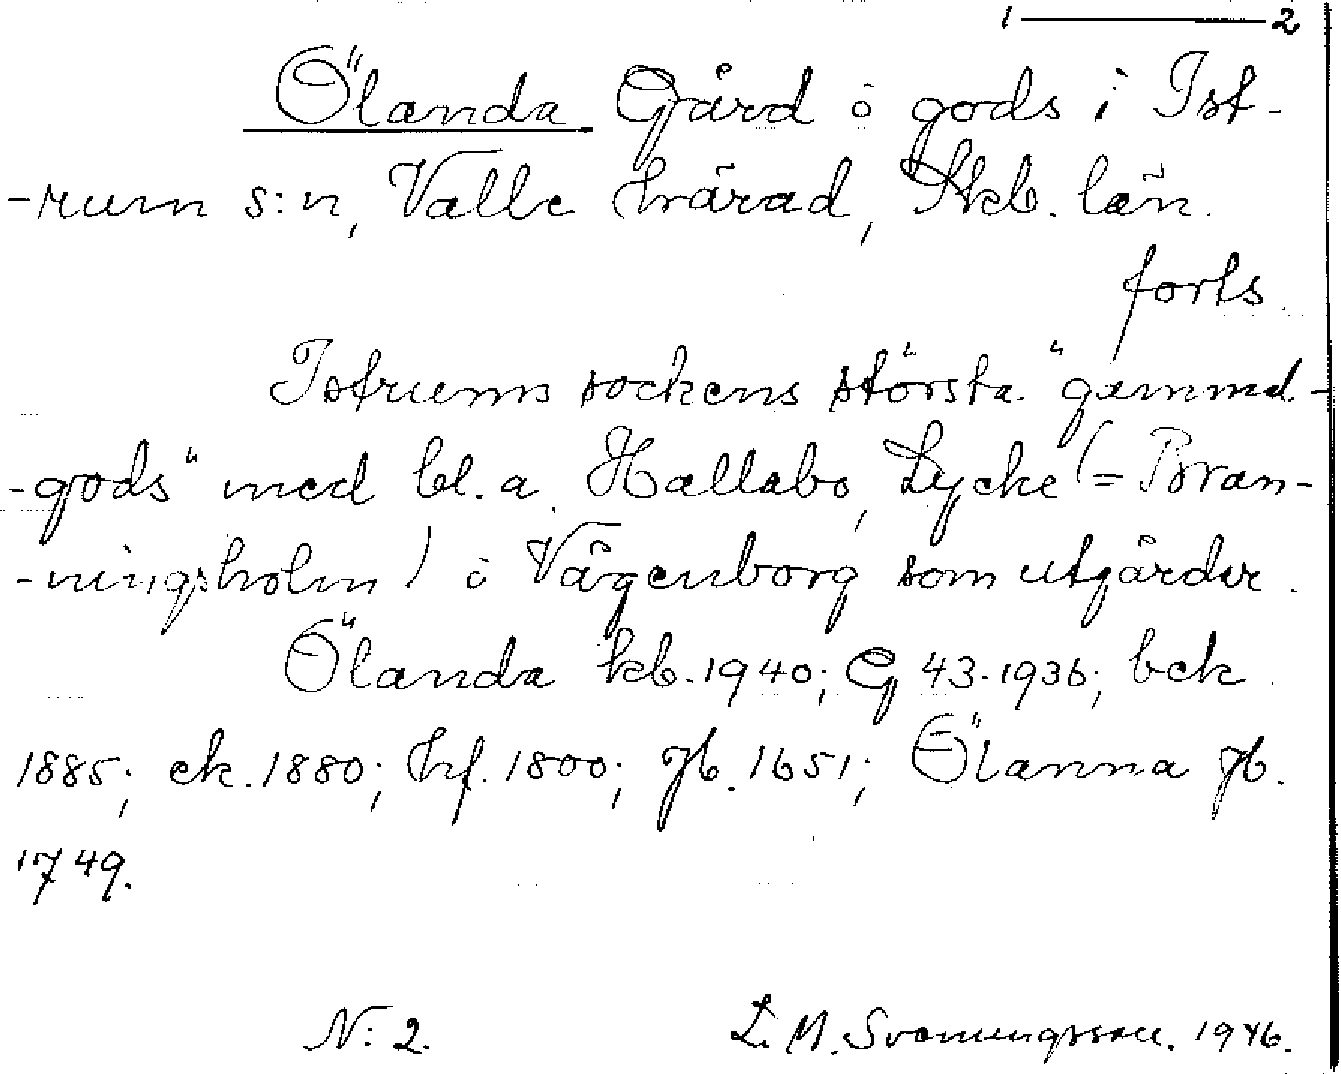 1 ——— 2
Ölanda Gård o gods i Ist-
-rum s:n, Valle härad, Skb. län.
forts.
Istrums sockens största "gammal-
-gods" med bl.a. Hallabo, Lycke (= Bran-
-ningsholm) o Vågenborg som utgårdar.
Ölanda kb. 1940; G 43. 1936; bek
1885; ek. 1880; hf. 1800; Jb. 1651; Ölanna Jb.
1749.
N: 2. L. M. Svenungsson. 1946.